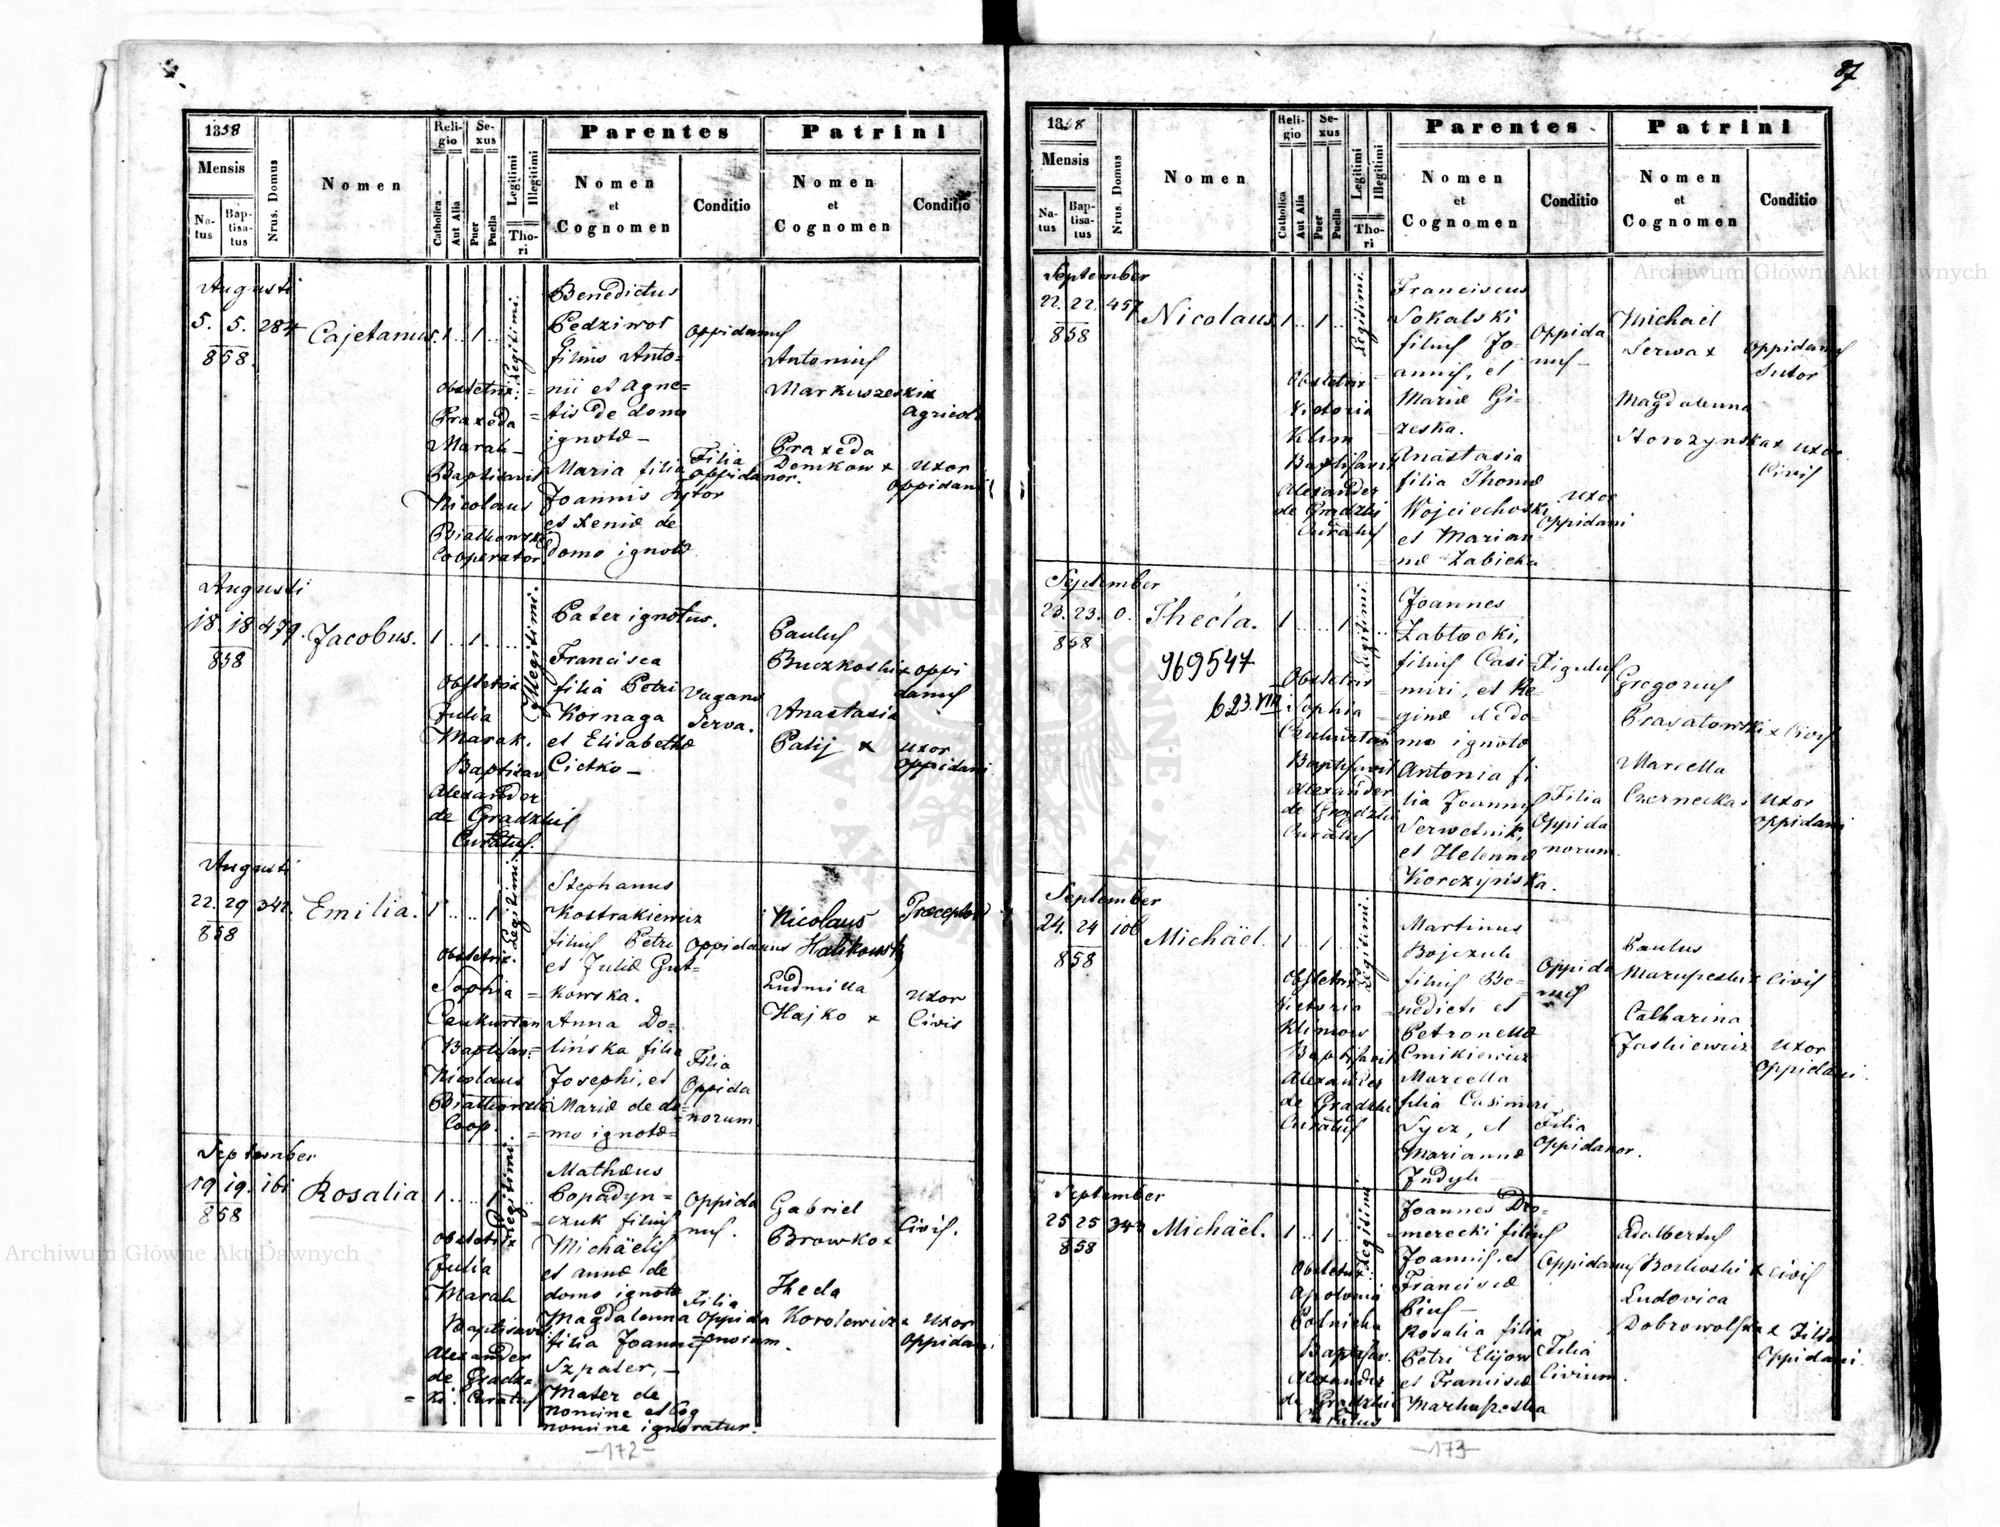 87
1858
Mensis
Natus
Baptisatus
Nrus. Domus
Nomen
Religio
Catholica
Aut Alia
Sexus
Puer
Puella
Legitimi
Illegitimi
Thori
Parentes
Nomen
et
Cognomen
Conditio
Patrini
Nomen
et
Cognomen
Conditio
Augusti
5. 5. 284
858.
Cajetanus. 1 .. 1 ..
Legitimi.
Obstetrix
Praxeda
Marak
Baptisavit
Nicolaus
Białkowski
Cooperator
Benedictus
Pędziwot
filius Anto=
nii et Agne=
tis de domo
ignotæ
Maria filia
Joannis
et Xeniæ de
domo ignotæ
Oppidanus
Filia
oppidanor.
Antonius
Markuszeski x
Agricola
Praxeda
Demkow x
Uxor
oppidani
Augusti
18. 18 479.
858
Jacobus. 1 .. 1 ..
Illegitimi.
Obstetrix
Julia
Marak.
Baptisav.
Alexander
de Gradzki
Curatus.
Pater ignotus.
Francisca
filia Petri
Kornaga
et Elisabethæ
Cictko
Vagans
Serva.
Paulus
Buczkoski x oppi
danus
Anastasia
Patij x
uxor
oppidani
Augusti
22. 29 342.
858
Emilia. 1 .. .. 1
Legitimi.
Obstetrix
Sophia
Baptisav.
Nicolaus
Białkowski
Coop.
Stephanus
Kostrakiewicz
filius Petri
et Juliæ Gut=
kowska.
Anna Do=
lińska filia
Josephi, et
Mariæ de do=
mo ignotæ
Oppidanus
Filia
Oppida
norum
Nicolaus
Halikowski
Præceptor
Ludmilla
Hajko x
Uxor
Civis
September
19 19. 161
858
Rosalia 1 .. .. 1
Legitimi.
Obstetrix
Julia
Marak
Baptisavit
Alexander
de Gradz=
ki Curatus
Mathæus
Copadyn=
czuk filius
Michäelis
et Annæ de
domo ignotæ
Magdalenna
filia Joannis
Szpaler,
Mater de
nomine et cog
nomine ignoratur.
Oppida
nus.
Filia
Oppida
norum.
Gabriel
Browko x
Civis.
Thecla
Korolewicz x
Uxor
oppidani
-172-
1858
Mensis
Natus
Baptisatus
Nrus. Domus
Nomen
Religio
Catholica
Aut Alia
Sexus
Puer
Puella
Legitimi
Illegitimi
Thori
Parentes
Nomen
et
Cognomen
Conditio
Patrini
Nomen
et
Cognomen
Conditio
September
22. 22. 457
858
Nicolaus 1 .. 1 ..
Legitimi.
Obstetrix
Victoria
Klim
Baptisavit
Alexander
de Gradzki
Curatus
Franciscus
Sokalski
filius Jo=
annis, et
Mariæ Gi=
zeska.
Anastasia
filia Thomæ
Wojciechoski
et Marian
næ Zabicka
Oppida
nus
Uxor
Oppidani
Michaël
Serwa x
Oppidanus
Sutor
Magdalenna
Uxor
Civis
September
23. 23. 0.
858
Thecla. 1 .. .. 1
969547
623.VIII
Legitimi.
Obstetrix
Sophia
Baptisavit
Alexander
de Gradzki
Curatus
Joannes
Zabłocki,
filius Casi=
miri, et Re=
ginæ de do=
mo ignotæ
Antonia fi
lia Joannis
Serwetnik,
et Helennæ
Korczyńska.
Figulus
Filia
Oppida
norum
Gregorius
Prasałowski x Civis
Marcella
Czernecka x
Uxor
oppidani
September
24. 24 106
858
Michäel. 1 .. 1 ..
Legitimi.
Obstetrix
Victoria
Klimow
Baptisavit
Alexander
de Gradzki
Curatus
Martinus
Bojczuk
filius Be=
nedicti et
Petronellæ
Cmikiewicz
Marcella
filia Casimiri
Sycz, et
Mariannæ
Jndyk
Oppida
nus
Filia
Oppidanor.
Paulus
Civis
Catharina
Jaskiewicz
Uxor
Oppidani.
September
25 25 342
858
Michäel. 1 .. 1 ..
Legitimi
Obstetrix
Apolonia
Baptisav.
Alexander
de Gradzki
Curatus
Joannes Dro=
merecki filius
Joannis, et
Franciscæ
Cius
Rosalia filia
Petri Elijow
et Franciscæ
Oppidanus
Filia
Civium.
Adalbertus
Borkoski x Civis
Ludovica
Dobrowolska x Filia
Oppidani.
-173-
Archiwum Główne Akt Dawnych
Archiwum Główne Akt Dawnych